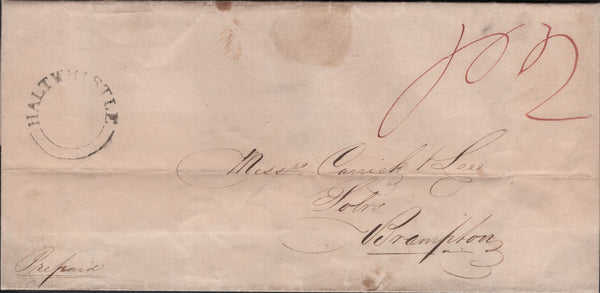 HALTWHISTLE
Pd 2
Messrs Carrick & Lee
Solrs
Brampton
Prepaid